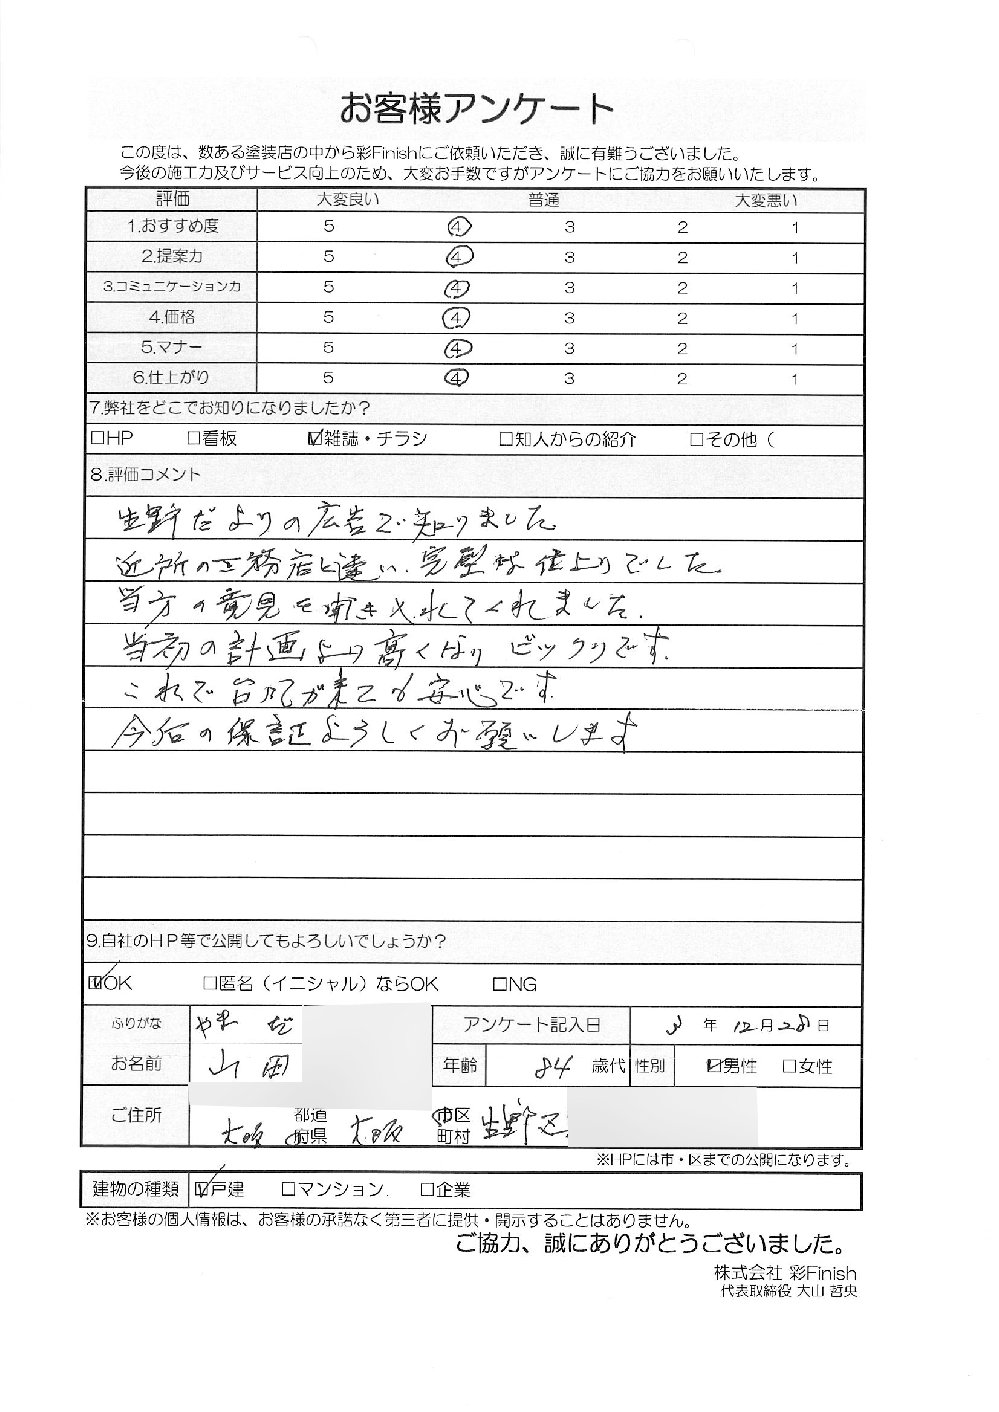 お客様アンケート
この度は、数ある塗装店の中から彩Finishにご依頼いただき、誠に有難うございました。
今後の施工力及びサービス向上のため、大変お手数ですがアンケートにご協力をお願いいたします。
評価 大変良い 普通 大変悪い
1.おすすめ度 5 4 3 2 1
2.提案力 5 4 3 2 1
3.コミュニケーション力 5 4 3 2 1
4.価格 5 4 3 2 1
5.マナー 5 4 3 2 1
6.仕上がり 5 4 3 2 1
7.弊社をどこでお知りになりましたか？
□HP □看板 ☑雑誌・チラシ □知人からの紹介 □その他（
8.評価コメント
生野だよりの広告で知りました
近所の工務店と違い、完璧な仕上りでした。
当方の意見を聞き入れてくれました.
当初の計画より高くなりビックリです.
これで台風が来ても安心です.
今后の保証よろしくお願いします
9.自社のHP等で公開してもよろしいでしょうか？
☑OK □匿名（イニシャル）ならOK □NG
ふりがな やまだ アンケート記入日 3年12月28日
お名前 山田 年齢 84歳代 性別 ☑男性 □女性
ご住所 大阪 都道府県 大阪 市区町村 生野区
※HPには市・区までの公開になります。
建物の種類 ☑戸建 □マンション. □企業
※お客様の個人情報は、お客様の承諾なく第三者に提供・開示することはありません。
ご協力、誠にありがとうございました。
株式会社 彩Finish
代表取締役 大山 哲央